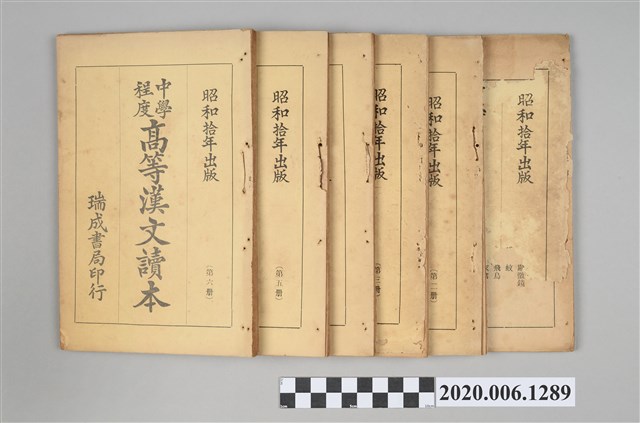 昭和拾年出版
中學程度
高等漢文讀本
(第六册)
瑞成書局印行
昭和拾年出版
(第五册)
昭和拾年出版
(第三册)
昭和拾年出版
(第二册)
昭和拾年出版
一
蚊
飛鳥
2020.006.1289